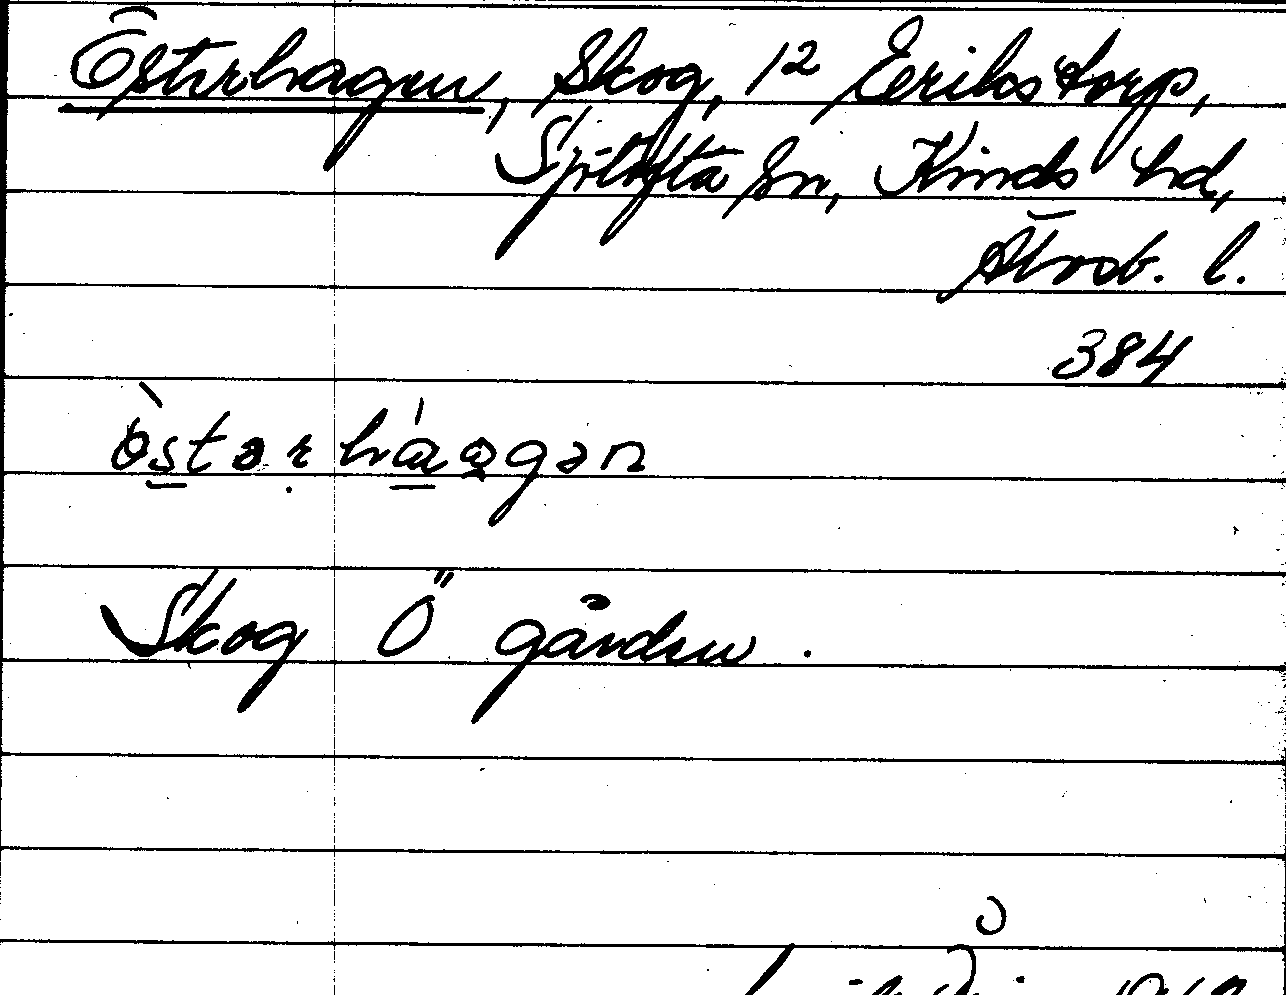 Österhagen, Skog, 12 Erikstorp,
Sjötofta sn, Kinds hd,
Älvsb. l.
384
òstər háágən
Skog Ö gården.